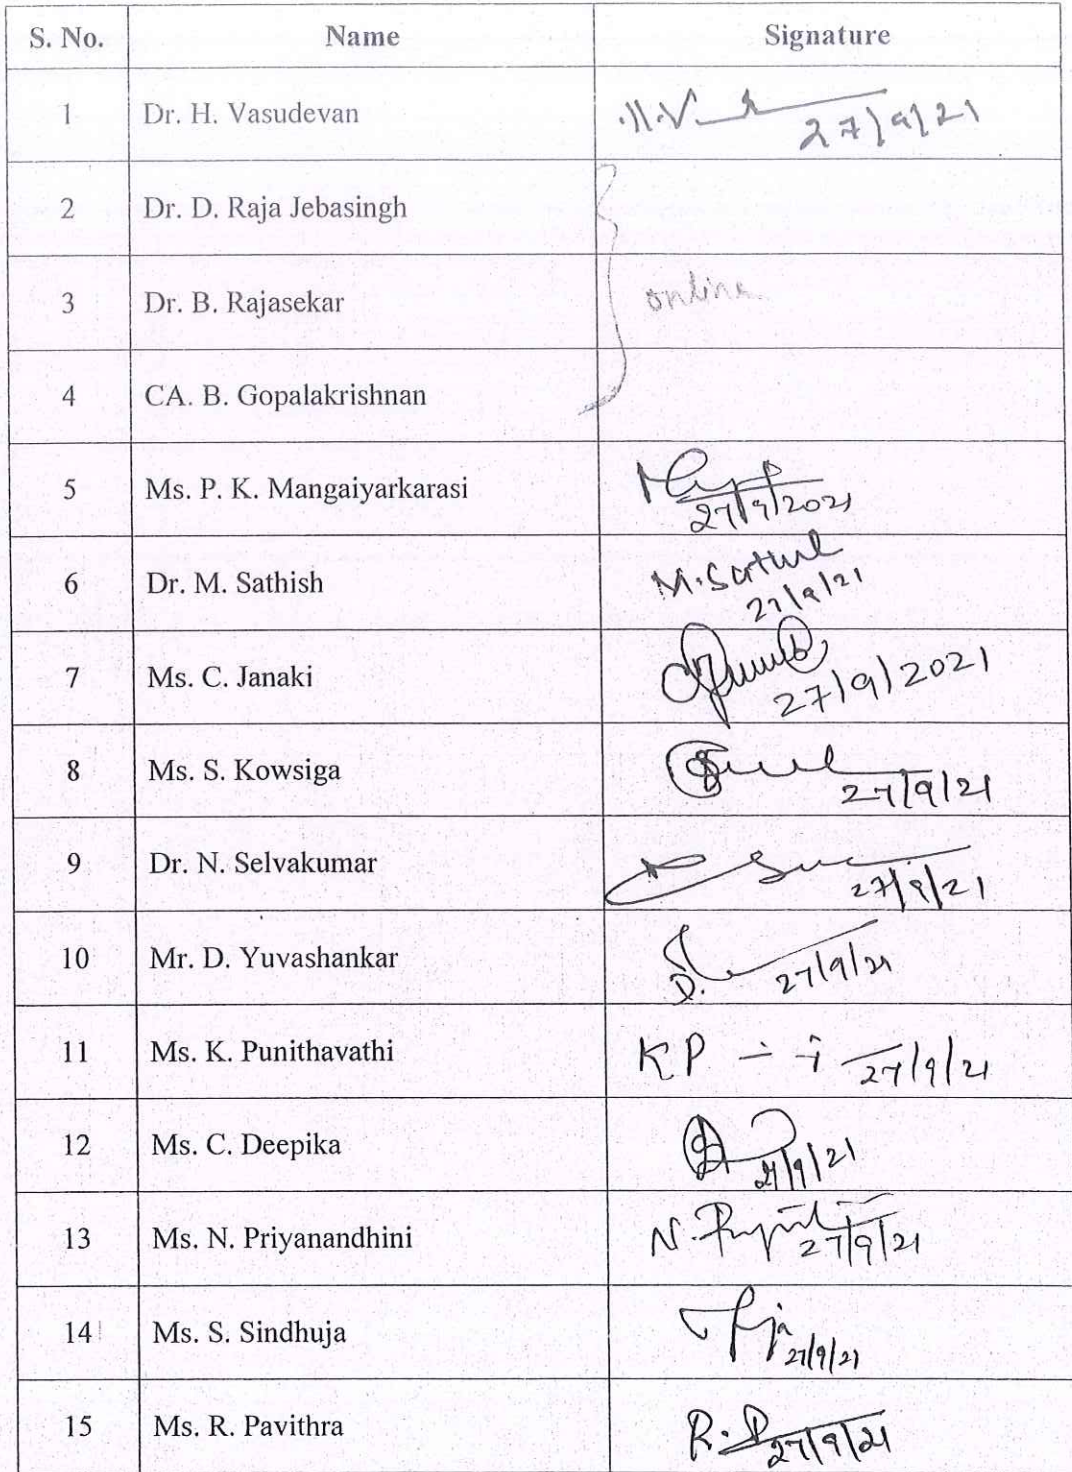 S. No. Name Signature
1 Dr. H. Vasudevan
27/9/21
2 Dr. D. Raja Jebasingh
3 Dr. B. Rajasekar online
4 CA. B. Gopalakrishnan
5 Ms. P. K. Mangaiyarkarasi
27/9/2021
6 Dr. M. Sathish M.
27/9/21
7 Ms. C. Janaki
27/9/2021
8 Ms. S. Kowsiga
27/9/21
9 Dr. N. Selvakumar
27/9/21
10 Mr. D. Yuvashankar D.
27/9/21
11 Ms. K. Punithavathi KP 27/9/21
12 Ms. C. Deepika
27/9/21
13 Ms. N. Priyanandhini N.
27/9/21
14 Ms. S. Sindhuja
27/9/21
15 Ms. R. Pavithra R.
27/9/21